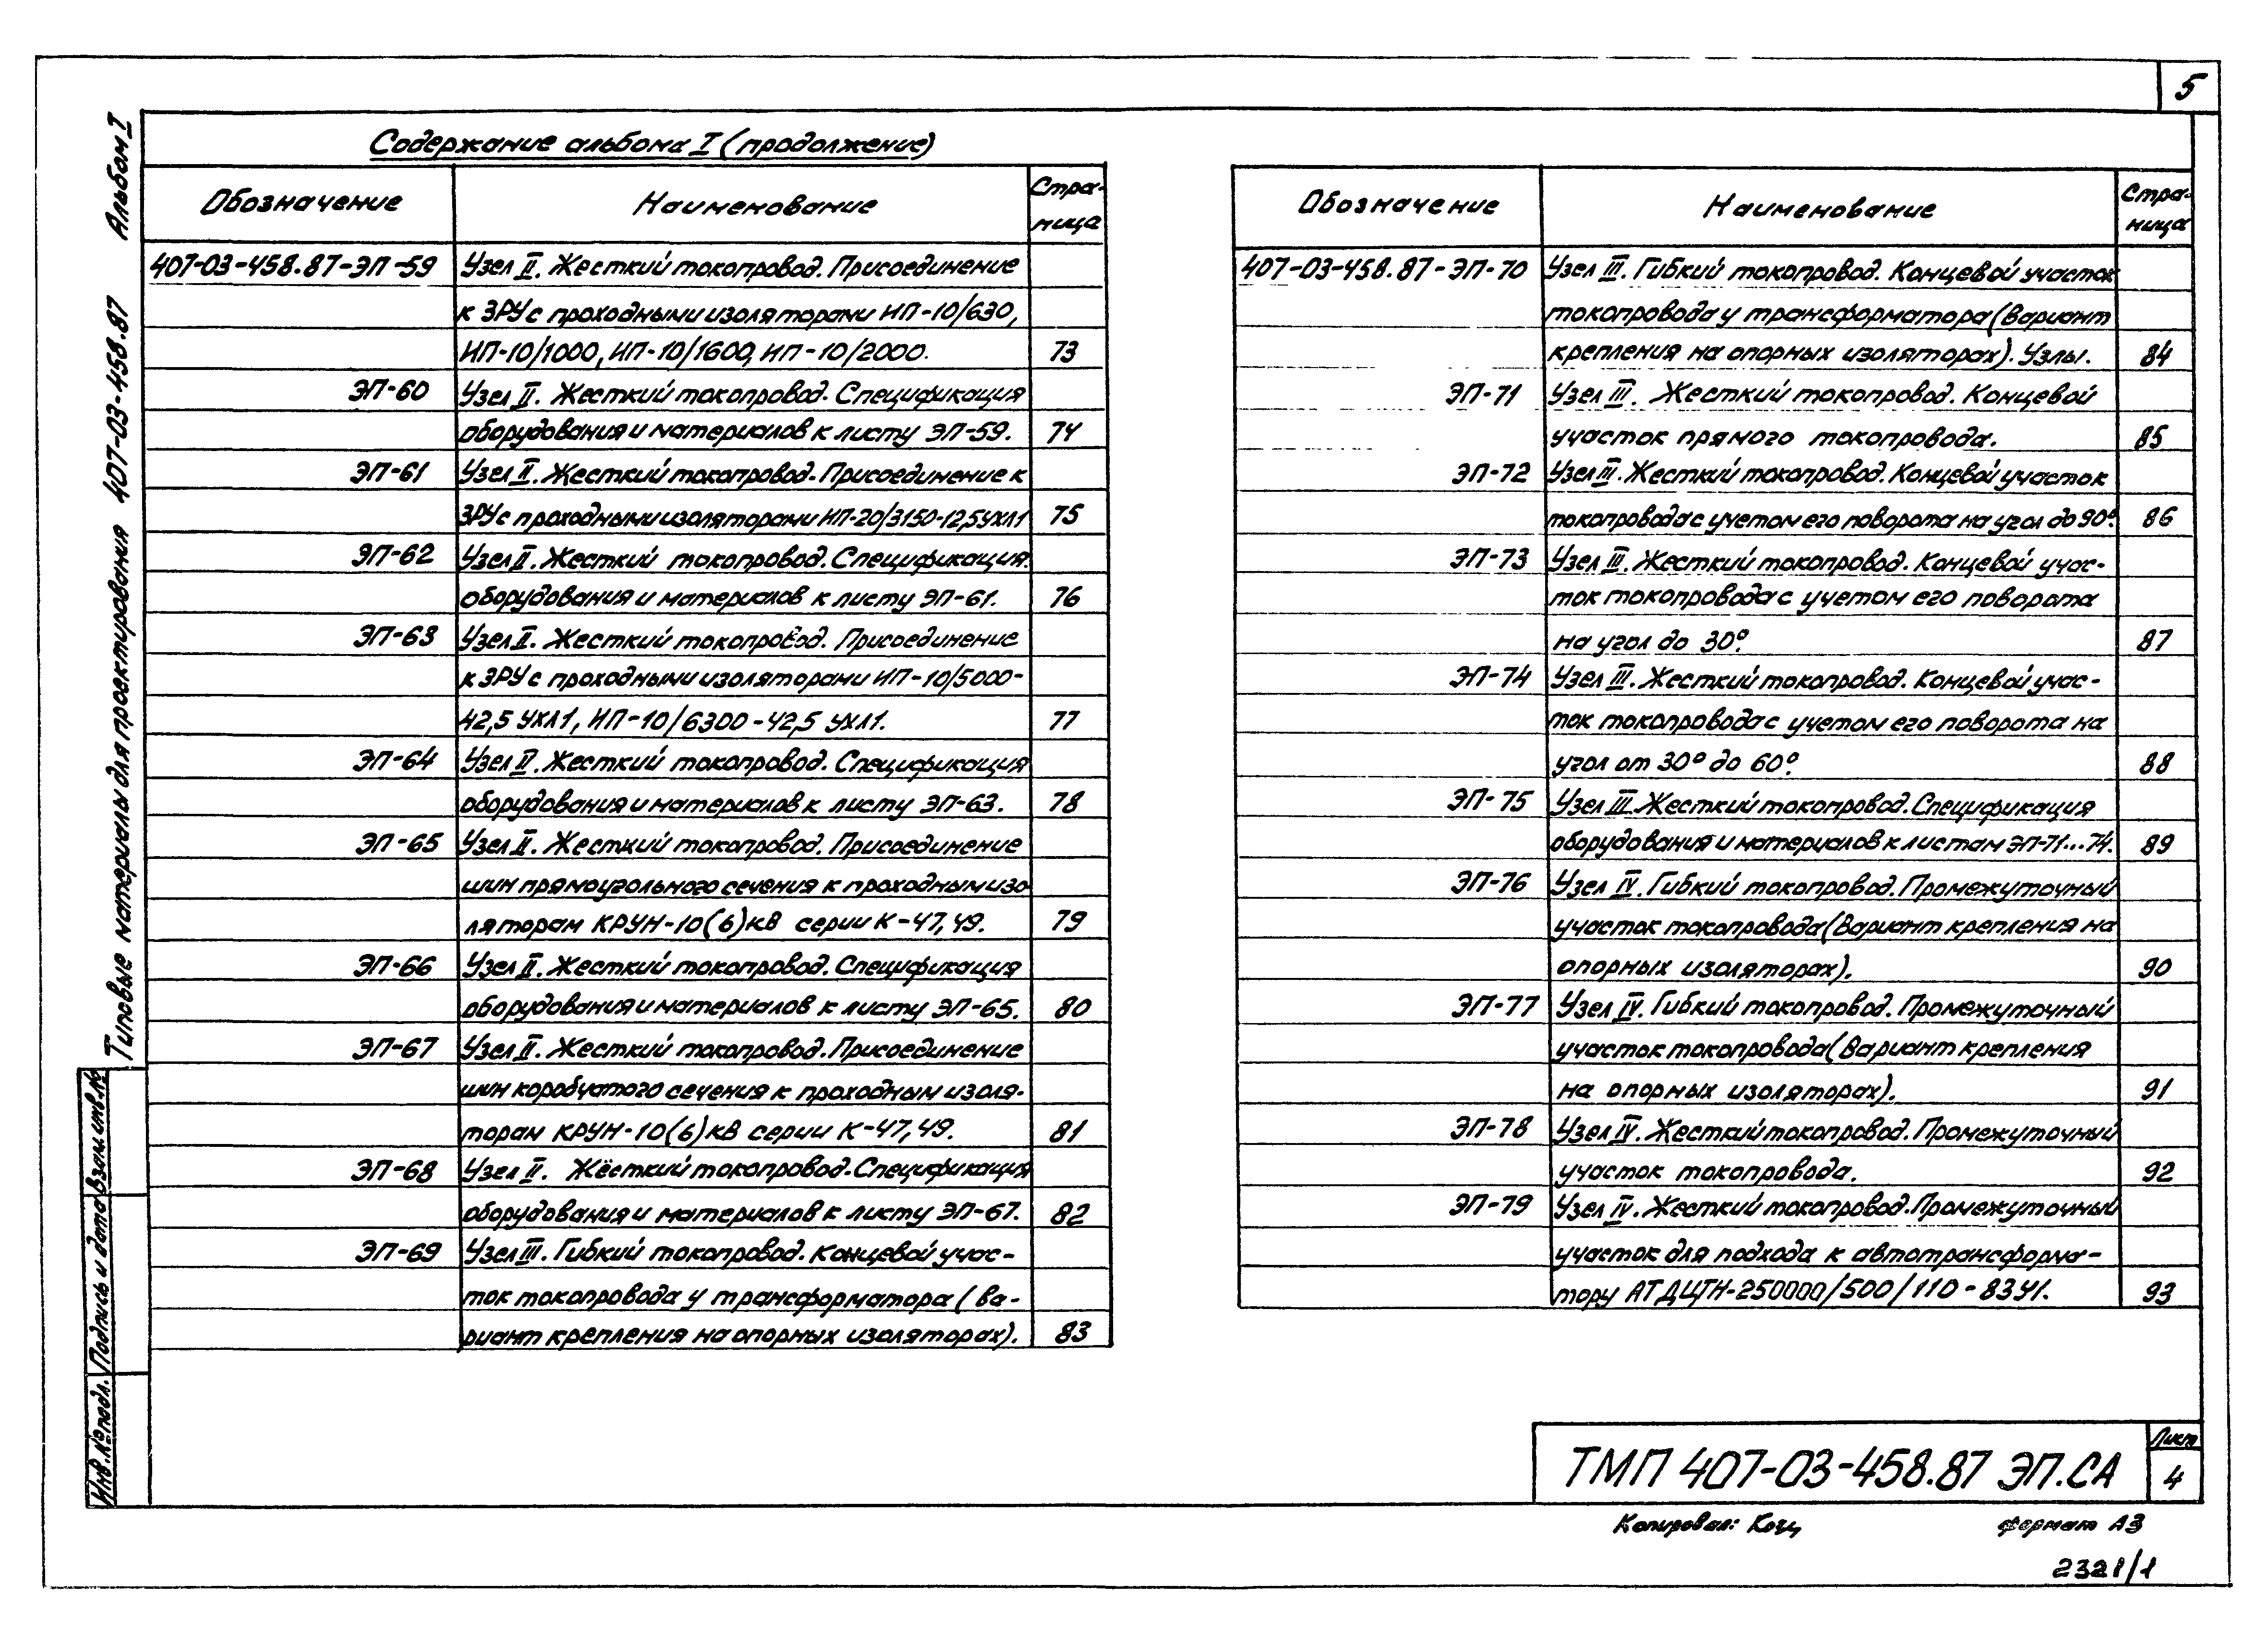 5
Содержание альбома I (продолжение)
Обозначение Наименование Стра-
ница
407-03-458.87-ЭП-59 Узел II. Жесткий токопровод. Присоединение
к ЗРУ с проходными изоляторами ИП-10/630,
ИП-10/1000, ИП-10/1600, ИП-10/2000. 73
ЭП-60 Узел II. Жесткий токопровод. Спецификация
оборудования и материалов к листу ЭП-59. 74
ЭП-61 Узел II. Жесткий токопровод. Присоединение к
ЗРУ с проходными изоляторами ИП-20/3150-12,5УХЛ1 75
ЭП-62 Узел II. Жесткий токопровод. Спецификация.
оборудования и материалов к листу ЭП-61. 76
ЭП-63 Узел II. Жесткий токопровод. Присоединение
к ЗРУ с проходными изоляторами ИП-10/5000-
42,5 УХЛ1, ИП-10/6300-42,5 УХЛ1. 77
ЭП-64 Узел II. Жесткий токопровод. Спецификация
оборудования и материалов к листу ЭП-63. 78
ЭП-65 Узел II. Жесткий токопровод. Присоединение
шин прямоугольного сечения к проходным изо-
ляторам КРУН-10(6)кВ серии К-47,49. 79
ЭП-66 Узел II. Жесткий токопровод. Спецификация
оборудования и материалов к листу ЭП-65. 80
ЭП-67 Узел II. Жесткий токопровод. Присоединение
шин коробчатого сечения к проходным изоля-
торам КРУН-10(6)кВ серии К-47,49. 81
ЭП-68 Узел II. Жёсткий токопровод. Спецификация
оборудования и материалов к листу ЭП-67. 82
ЭП-69 Узел III. Гибкий токопровод. Концевой учас-
ток токопровода у трансформатора (ва-
риант крепления на опорных изоляторах). 83
Обозначение Наименование Стра-
ница
407-03-458.87-ЭП-70 Узел III. Гибкий токопровод. Концевой участок
токопровода у трансформатора (вариант
крепления на опорных изоляторах). Узлы. 84
ЭП-71 Узел III. Жесткий токопровод. Концевой
участок прямого токопровода. 85
ЭП-72 Узел III. Жесткий токопровод. Концевой участок
токопровода с учетом его поворота на угол до 90°. 86
ЭП-73 Узел III. Жесткий токопровод. Концевой учас-
ток токопровода с учетом его поворота
на угол до 30°. 87
ЭП-74 Узел III. Жесткий токопровод. Концевой учас-
ток токопровода с учетом его поворота на
угол от 30° до 60°. 88
ЭП-75 Узел III. Жесткий токопровод. Спецификация
оборудования и материалов к листам ЭП-71...74. 89
ЭП-76 Узел IV. Гибкий токопровод. Промежуточный
участок токопровода (Вариант крепления на
опорных изоляторах). 90
ЭП-77 Узел IV. Гибкий токопровод. Промежуточный
участок токопровода (Вариант крепления
на опорных изоляторах). 91
ЭП-78 Узел IV. Жесткий токопровод. Промежуточный
участок токопровода. 92
ЭП-79 Узел IV. Жесткий токопровод. Промежуточный
участок для подхода к автотрансформа-
тору АТДЦТН-250000/500/110-83У1. 93
Типовые материалы для проектирования 407-03-458.87 Альбом I
Инв.№ подл. Подпись и дата Взам.инв.№
ТМП 407-03-458.87 ЭП.СА
Лист
4
Копировал: Коц формат А3
2321/1